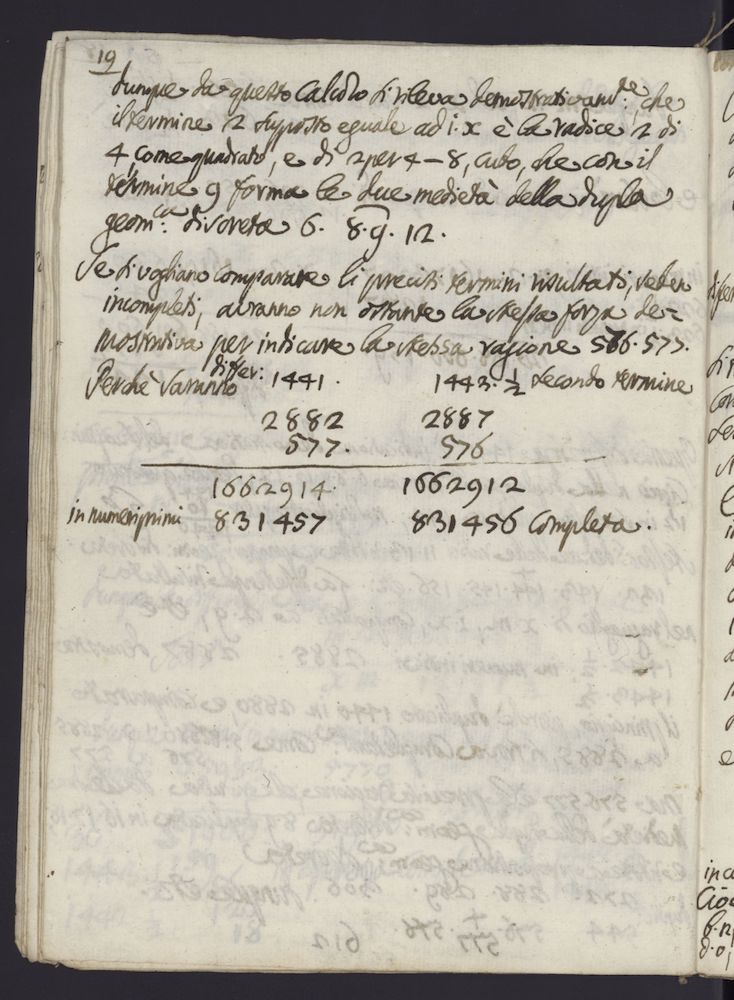 19
dunque da questo Calcolo si rileva demostrativam:te, che
il termine 2 supposto eguale ad 1. x è la radice 2 di
4, come quadrato, e di 2 per 4 — 8, cubo, che con il
termine 9 forma le due medietà della dupla
geom:ca discreta 6. 8. 9. 12.
Se si vogliano comparare li precisi termini risultati, seben
incompleti, avranno non ostante la stessa forza de=
mostrativa per indicare la stessa ragione 576. 577.
Perchè saranno differ: 1441. 1443. ½ secondo termine
2882 2887
577. 576
1662914. 1662912
in numeri primi 831457 831456 Completa.